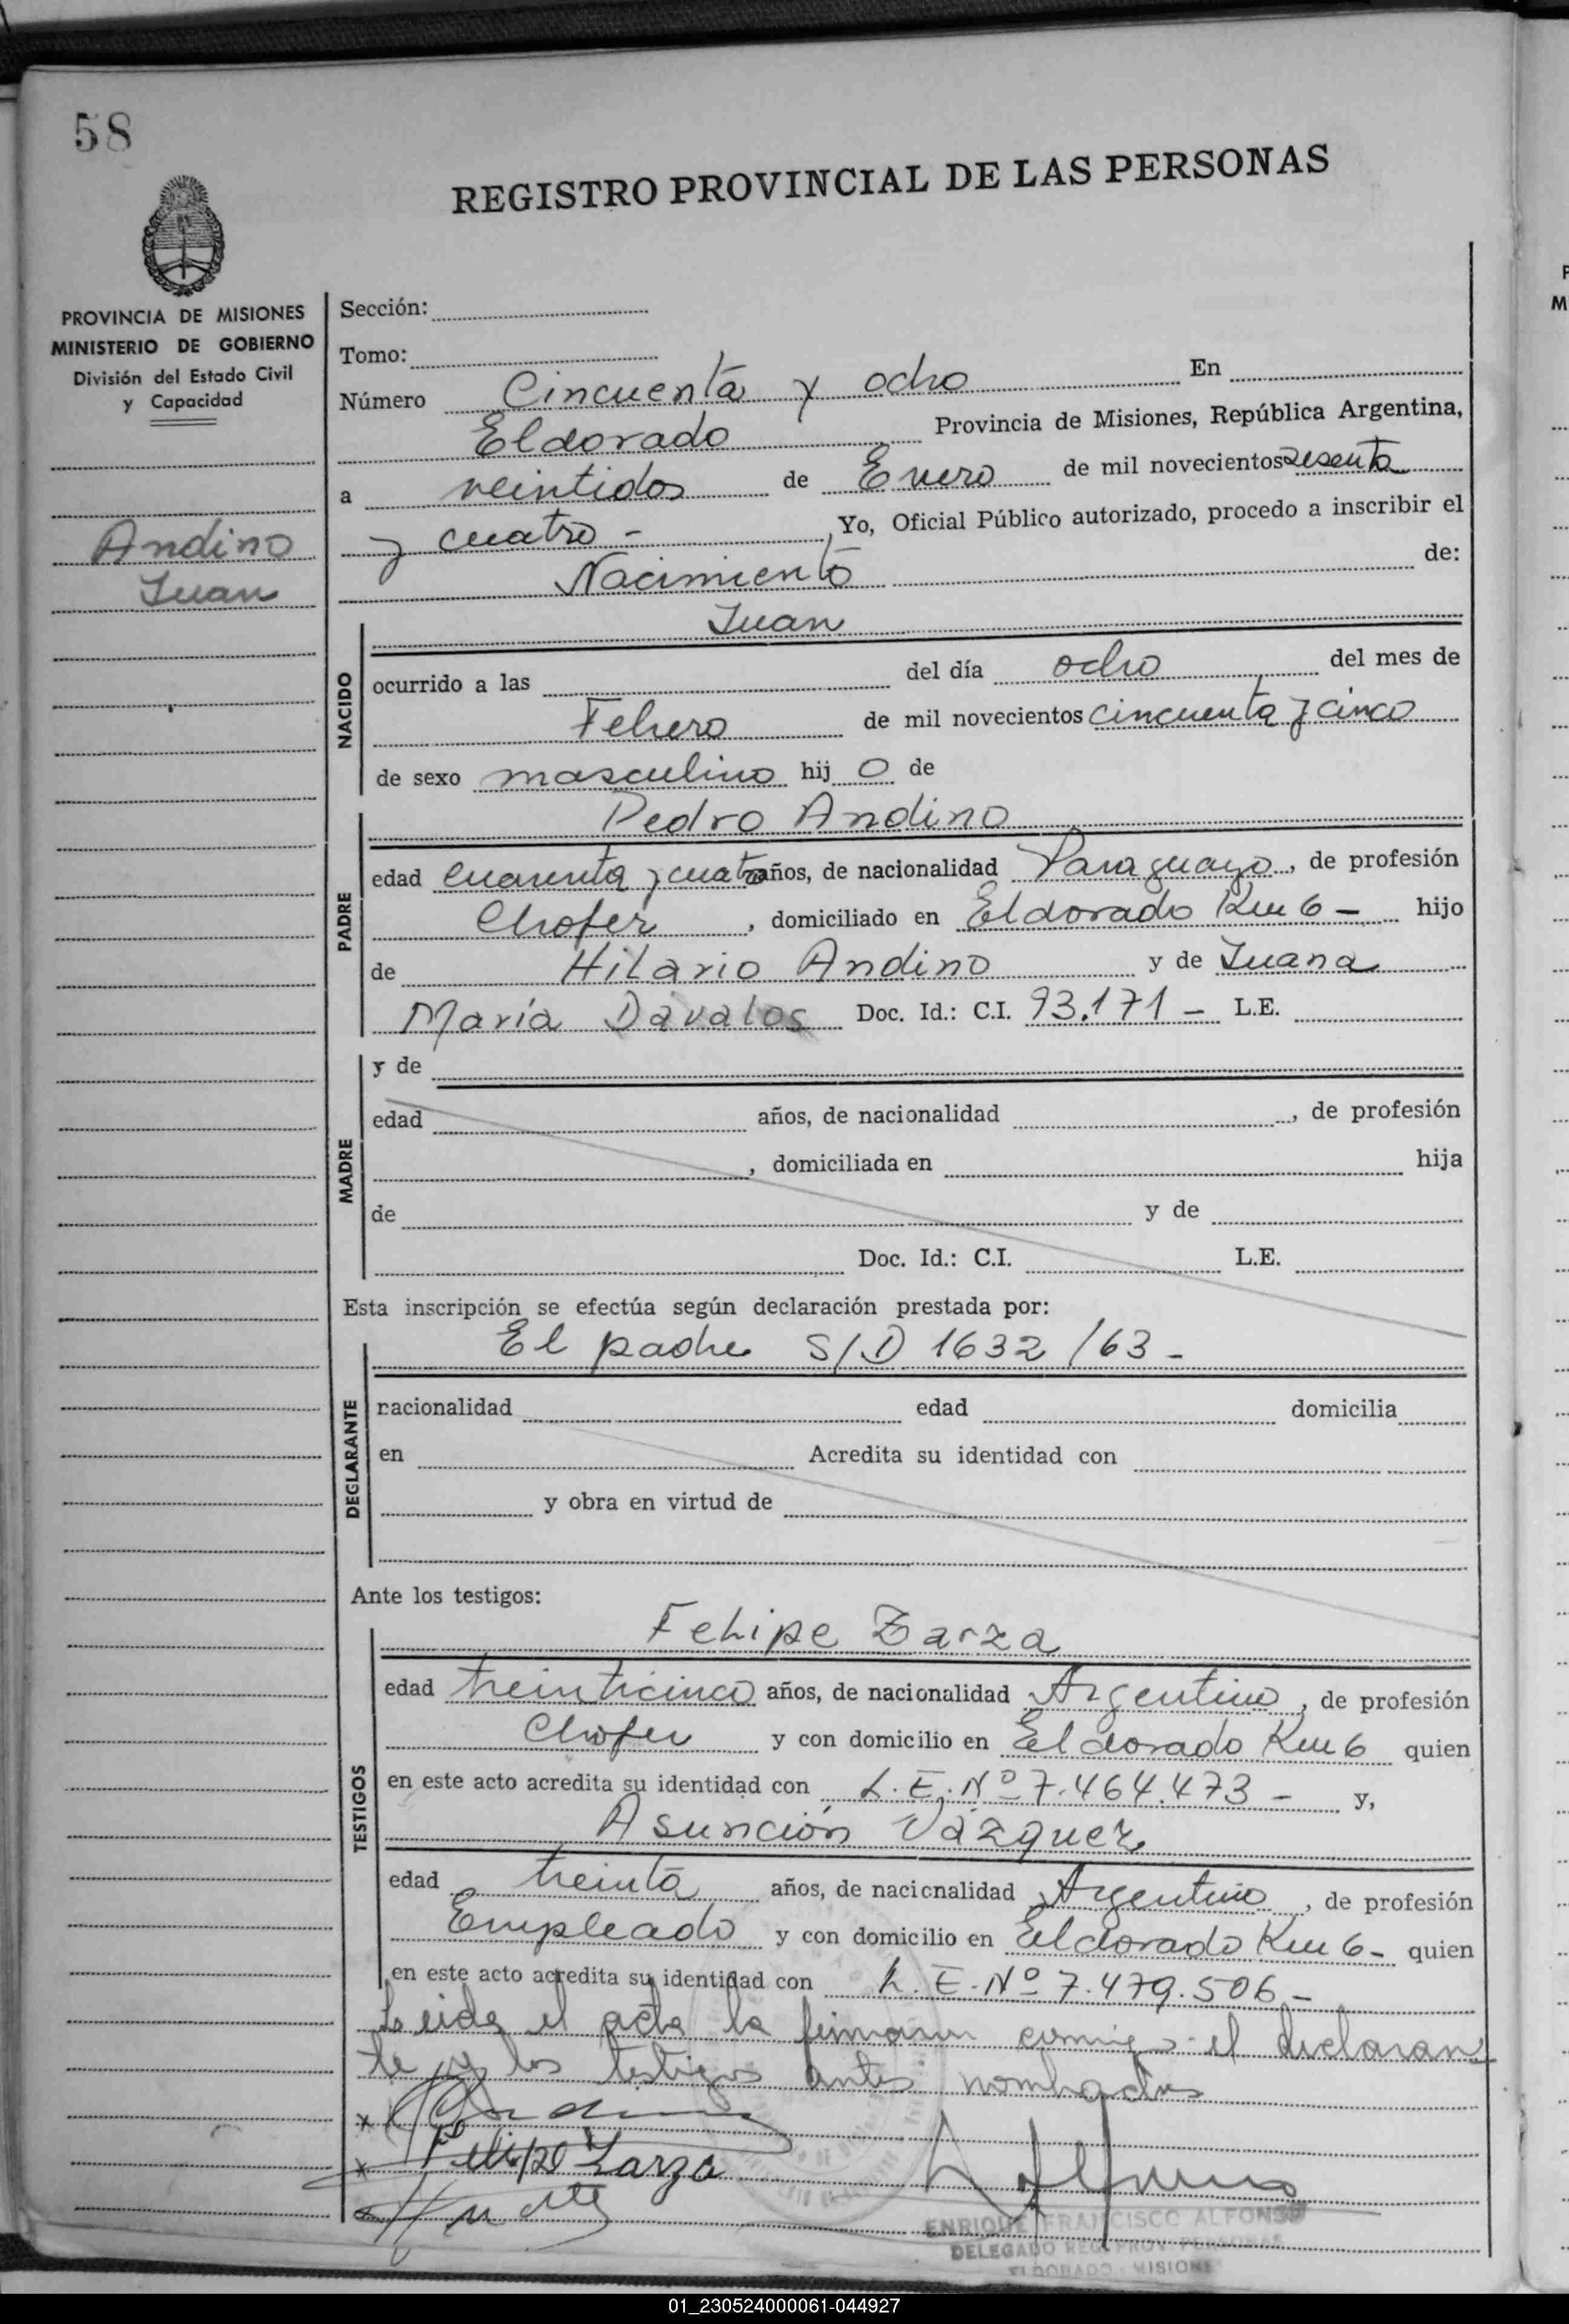 58
REGISTRO PROVINCIAL DE LAS PERSONAS
PROVINCIA DE MISIONES
MINISTERIO DE GOBIERNO
División del Estado Civil
y Capacidad
Andino
Juan
Sección:
Tomo:
Número Cincuenta y ocho En
Eldorado Provincia de Misiones, República Argentina,
a veintidos de Enero de mil novecientos sesenta
y cuatro - , Yo, Oficial Público autorizado, procedo a inscribir el
Nacimiento de:
Juan
NACIDO
ocurrido a las del día ocho del mes de
Febrero de mil novecientos cincuenta y cinco
de sexo masculino hij o de
Pedro Andino
PADRE
edad cuarenta y cuatro años, de nacionalidad Paraguayo, de profesión
Chofer, domiciliado en Eldorado Km 6 - hijo
de Hilario Andino y de Juana
María Dávalos Doc. Id.: C.I. 93.171 - L.E.
MADRE
y de
edad años, de nacionalidad , de profesión
, domiciliada en hija
de y de
Doc. Id.: C.I. L.E.
Esta inscripción se efectúa según declaración prestada por:
El padre S/D 1632 /63 -
DECLARANTE
nacionalidad edad domicilia
en Acredita su identidad con
y obra en virtud de
Ante los testigos:
Felipe Zarza
TESTIGOS
edad treinticinco años, de nacionalidad Argentino, de profesión
Chofer y con domicilio en Eldorado Km 6 quien
en este acto acredita su identidad con L.E. Nº 7.464.473 - y,
Asunción Vázquez
edad treinta años, de nacionalidad Argentino, de profesión
Empleado y con domicilio en Eldorado Km 6 - quien
en este acto acredita su identidad con L.E. Nº 7.479.506 -
Leida el acta la firman conmigo el declaran
te y los testigos antes nombrados
Felipe Zarza
ENRIQUE FRANCISCO ALFONSO
DELEGADO REG. PROV. PERSONAS
ELDORADO - MISIONES
01_230524000061-044927